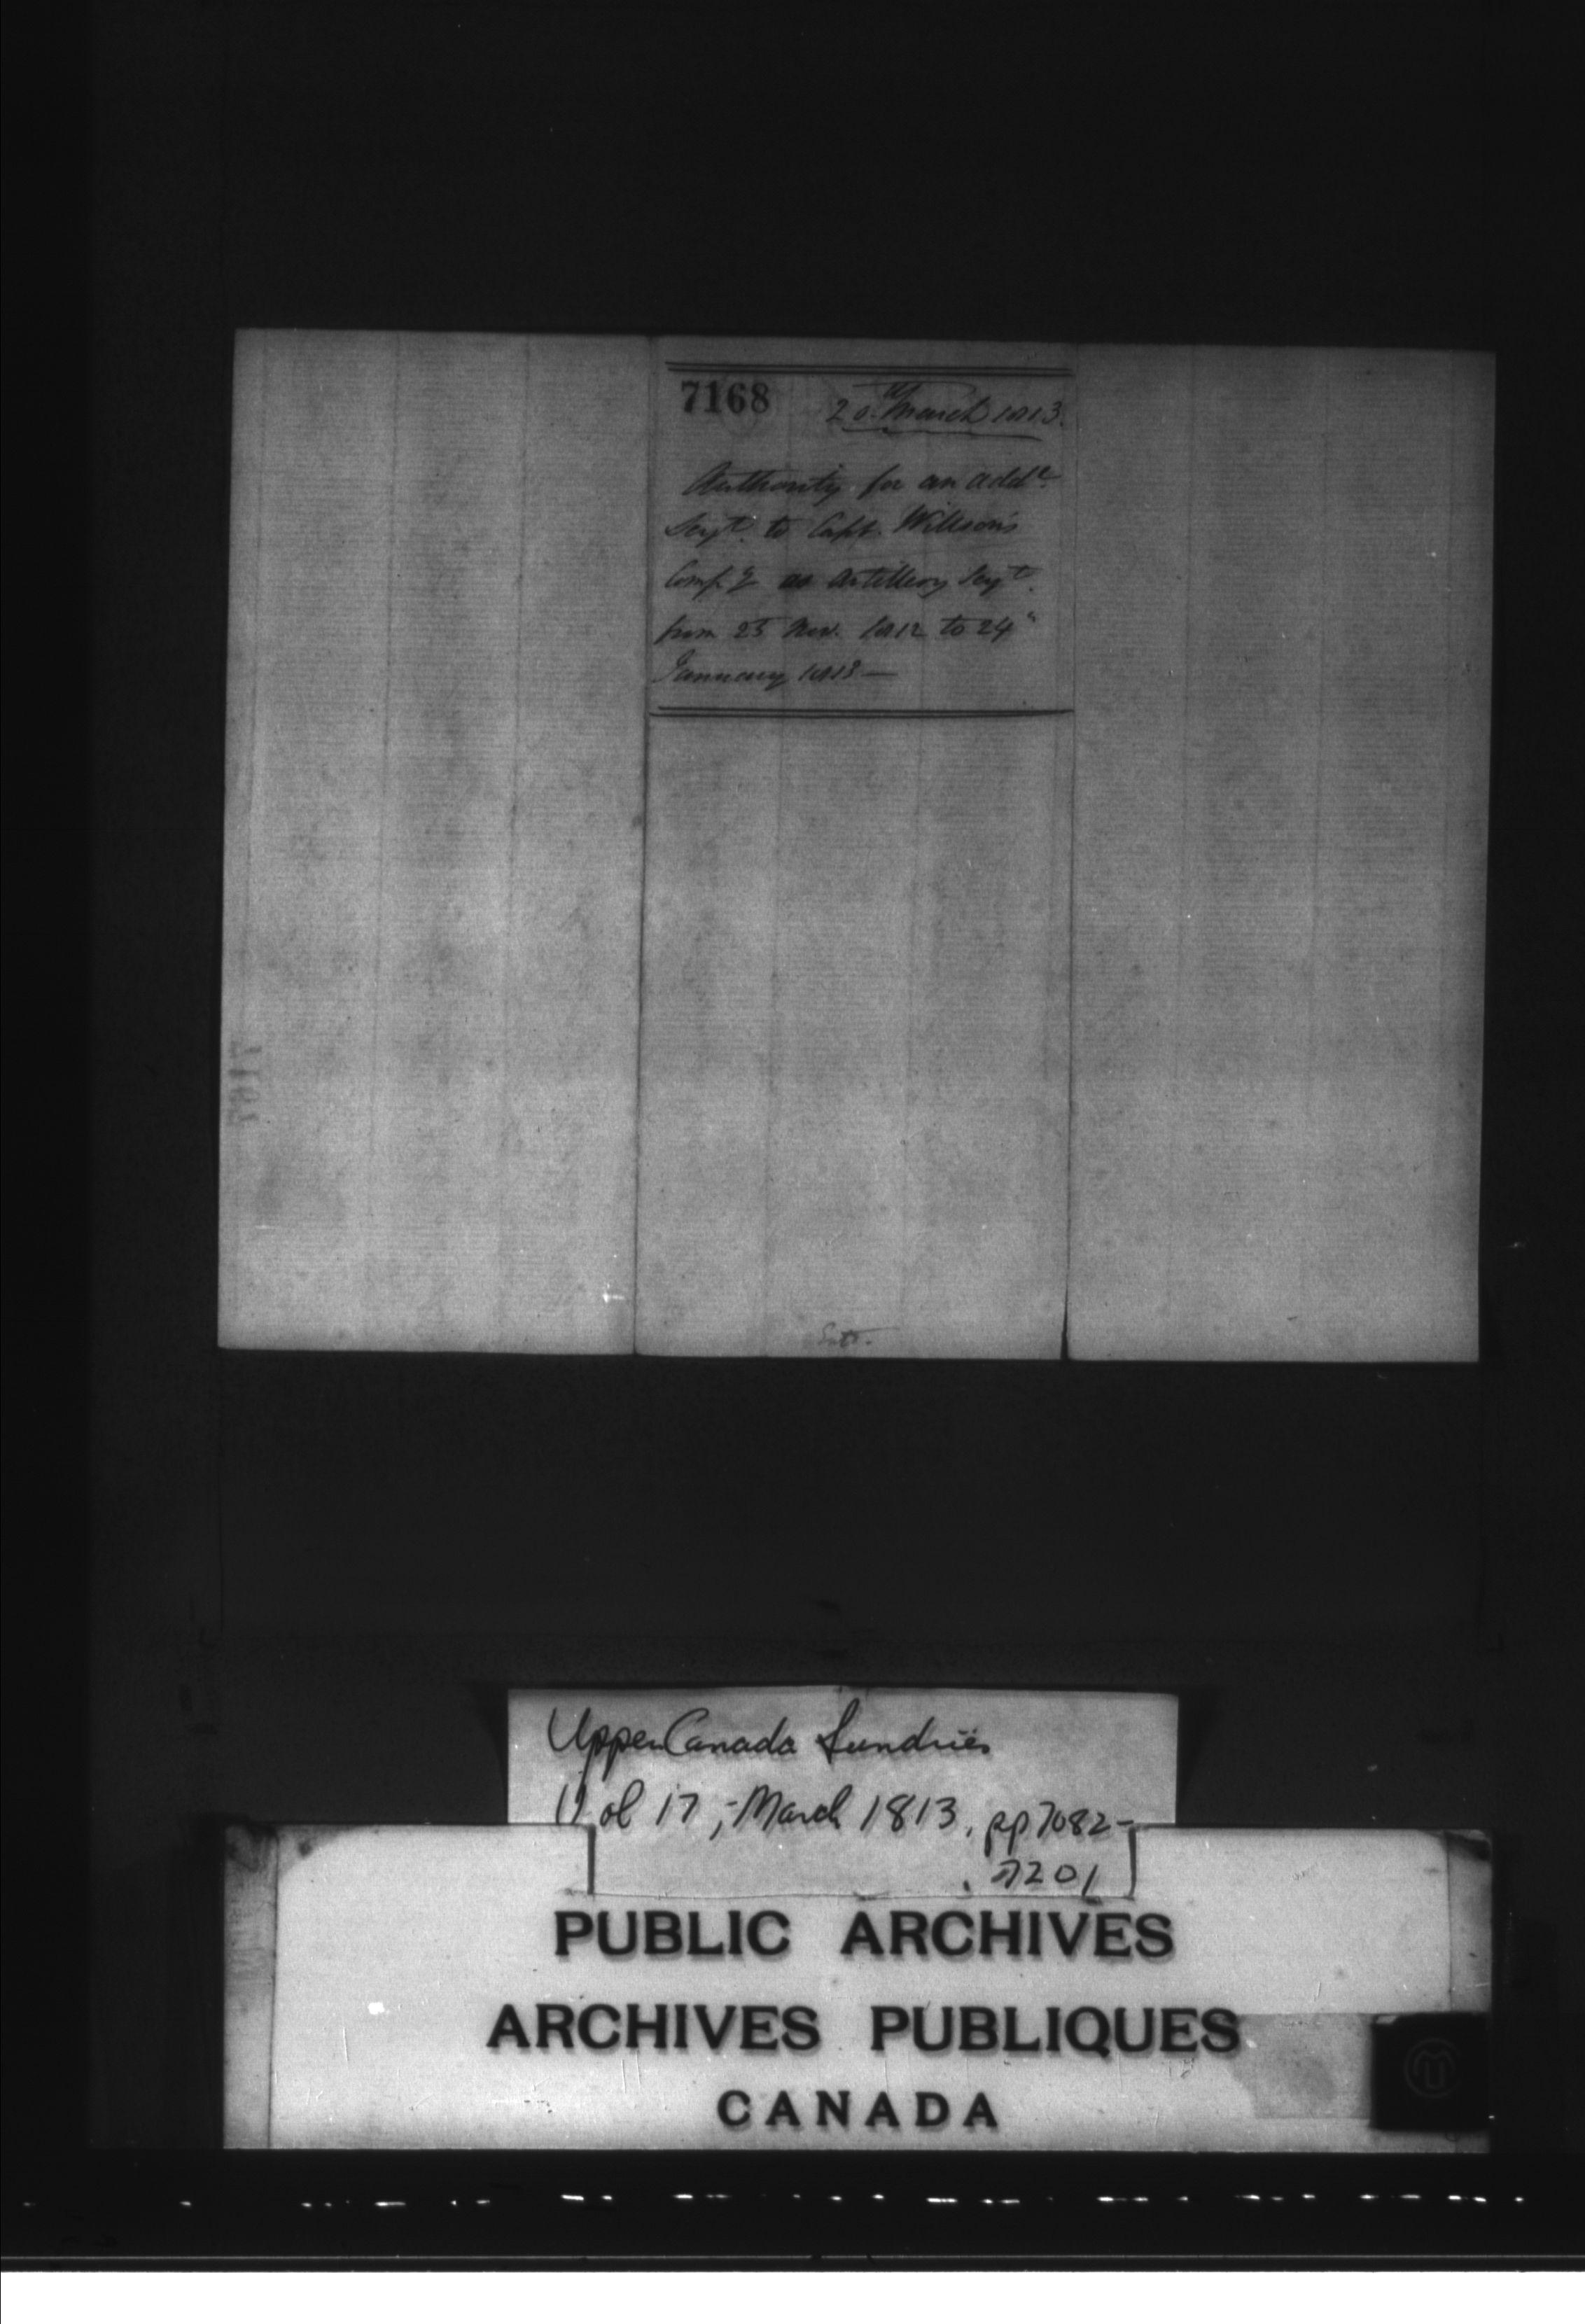 7168 20th March 1813.
Authority for an addl.
Sergt. to Capt. Willson's
Compy as Artillery Sergt.
from 25 Nov. 1812 to 24"
January 1813—
7167
Upper Canada Sundries
Vol 17, March 1813, pp 7082-
7201
PUBLIC ARCHIVES
ARCHIVES PUBLIQUES
CANADA